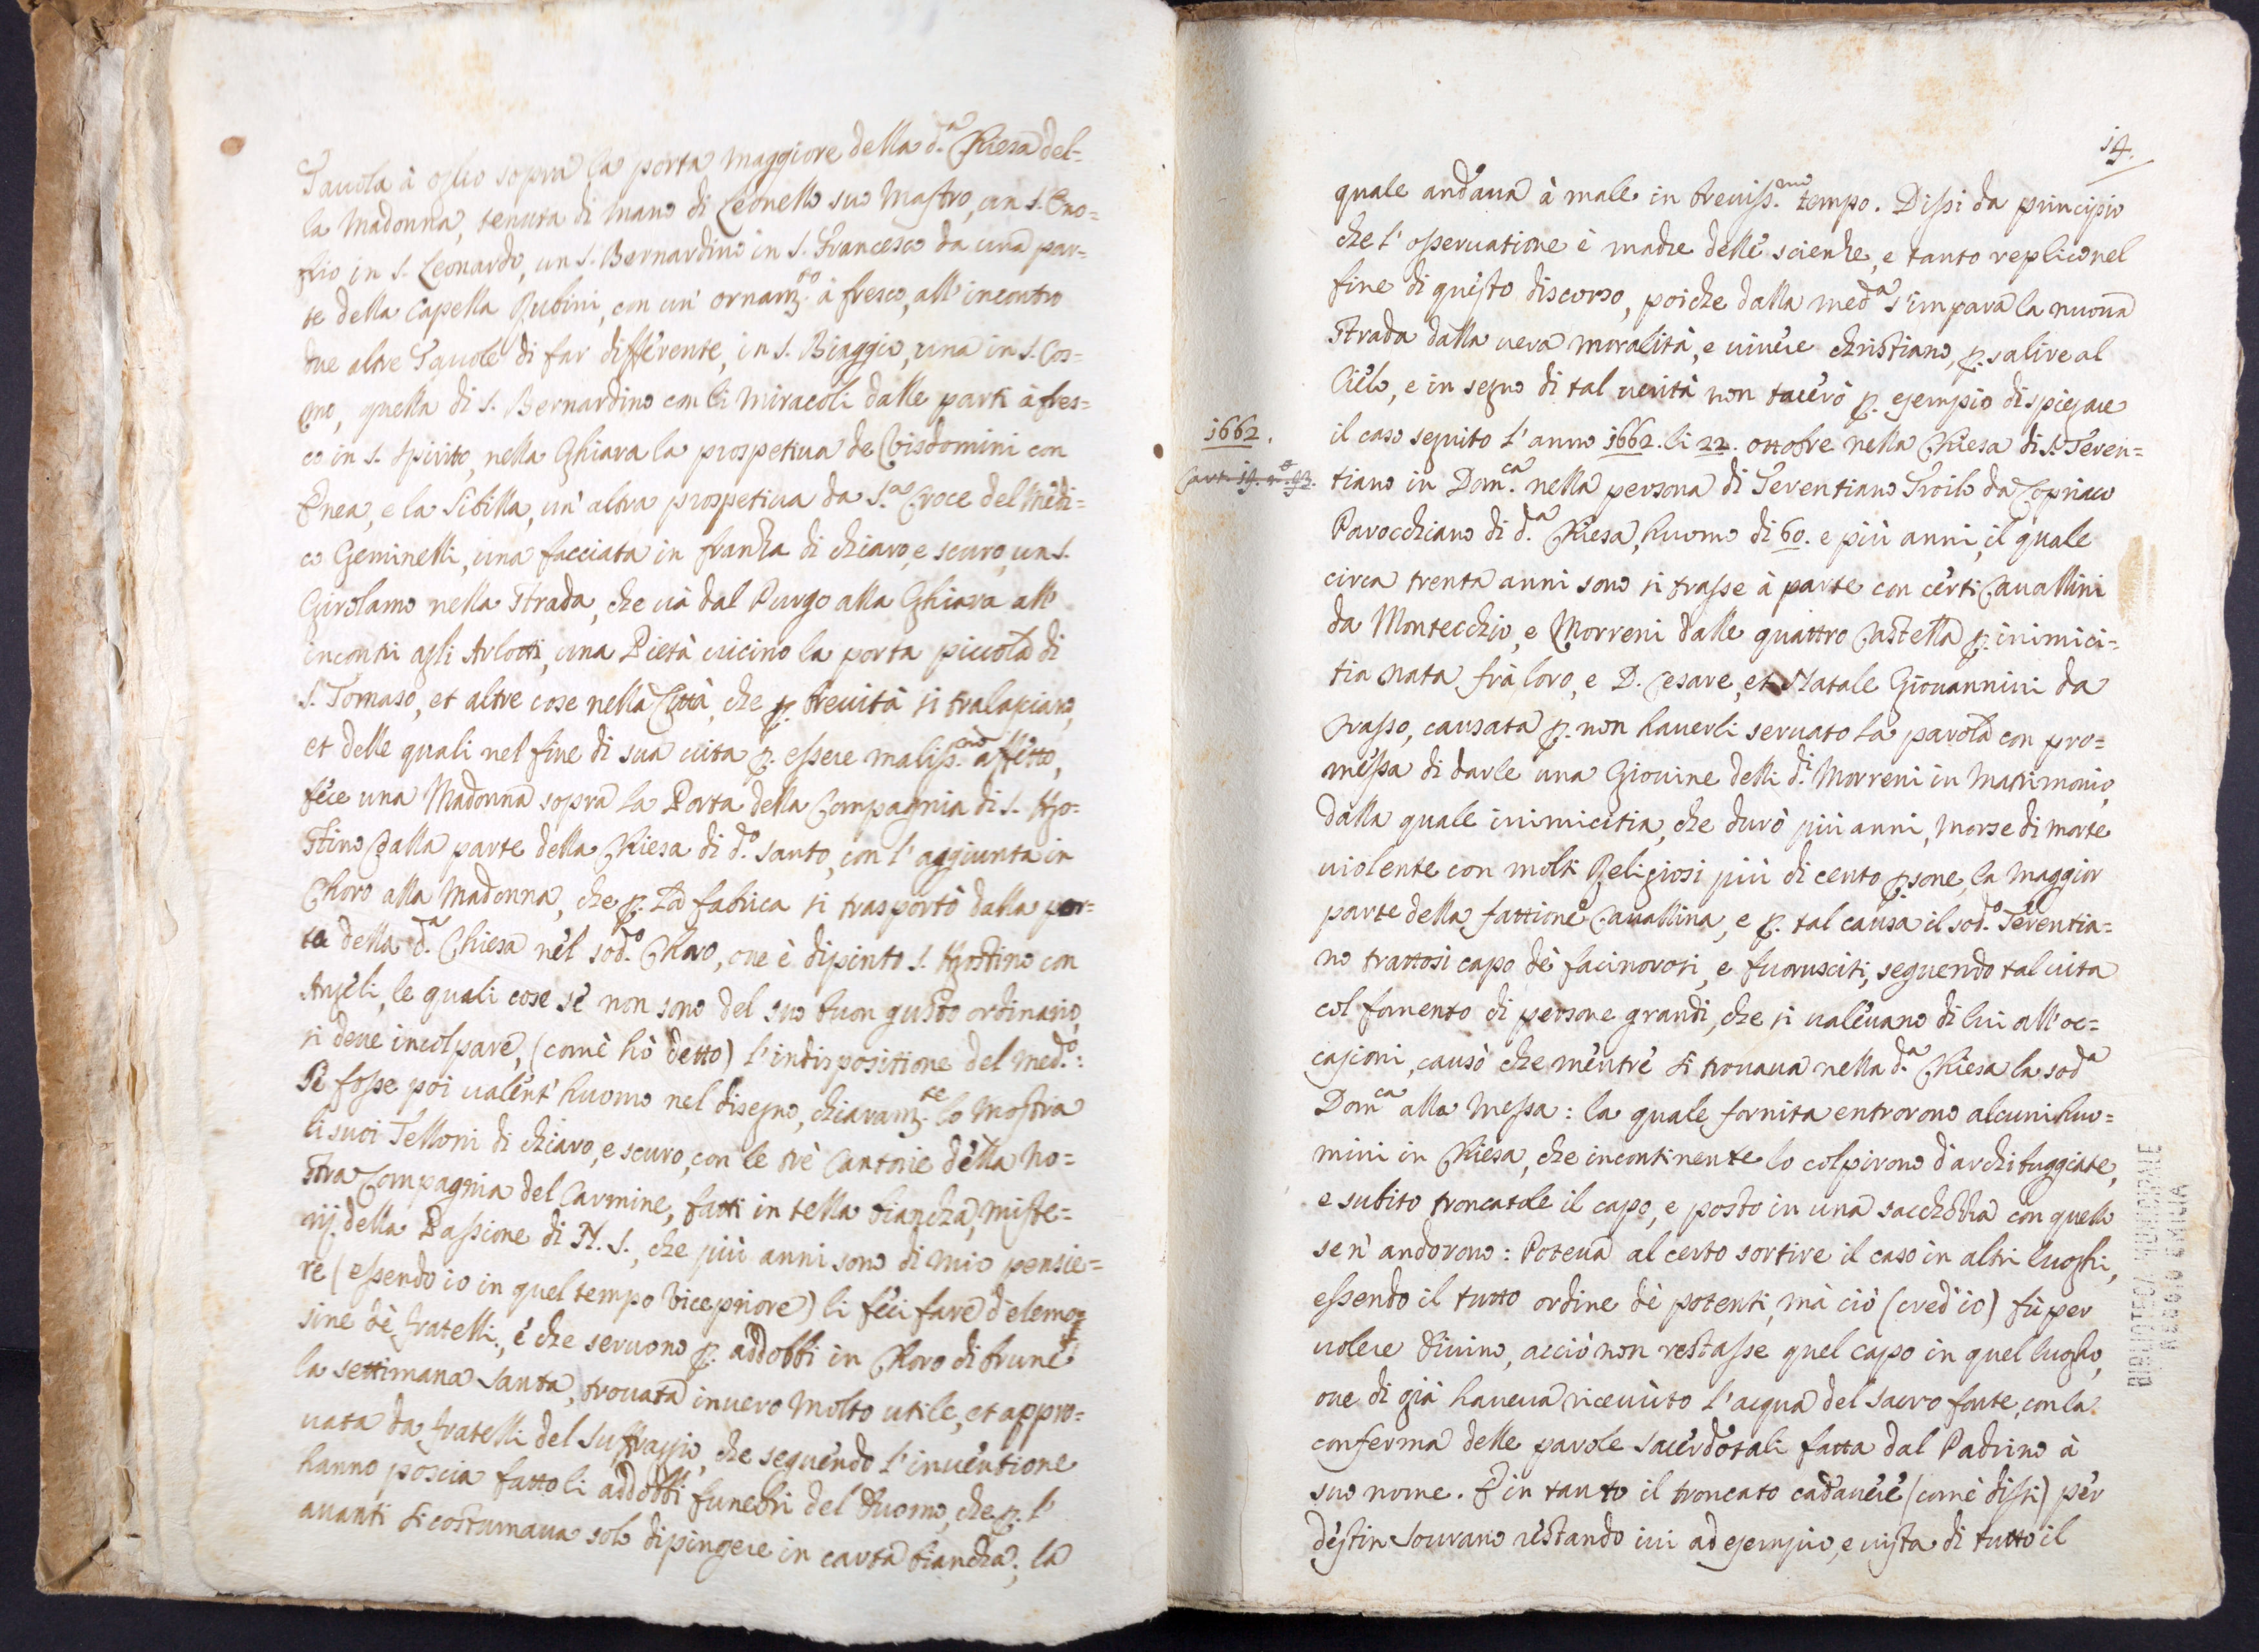 Tauola à oglio sopra la porta maggiore della d.ª Chiesa del=
la Madonna, tenuta di mano di Leonello suo Mastro, un s. Eno=
frio in s. Leonardo, un s. Bernardino in s. Francesco da una par=
te della Capella Rubini, con un' ornam.to à fresco, all' incontro
due altre Tauole di far differente, in s. Biaggio, una in s. Cos=
mo, quella di s. Bernardino con li miracoli dalle parti à fres=
co in s. Spirito, nella Ghiara la prospetiua de Visdomini con
Enea, e la Sibilla, un' altra prospetiua da S.ª Croce del Medi=
co Geminelli, una facciata in franza di chiaro, e scuro, un s.
Girolamo nella strada, che uà dal Purgo alla Ghiara all'
incontri agli Arlotti, una Pietà uicino la porta piccola di
s. Tomaso, et altre cose nella Città, che p. breuità si tralasciano,
et delle quali nel fine di sua uita p. essere maliss.mo affetto,
fece una Madonna sopra la Porta della Compagnia di s. Ago=
stino dalla parte della Chiesa di d.º Santo, con l' aggiunta in
Choro alla Madonna, che p. la fabrica si trasportò dalla por=
ta della d.ª Chiesa nel sod.º Choro, oue è dipinto s. Agostino con
Angeli, le quali cose se non sono del suo buon gusto ordinario,
si deue incolpare, (come hò detto) l' indispositione del med.º:
Se fosse poi ualent' huomo nel disegno, chiaram.te lo mostra
li suoi Telloni di chiaro, e scuro, con le trè Cantorie della no=
stra Compagnia del Carmine, fatti in tella biancha, miste=
rij della Passione di N. S., che più anni sono di mio pensie=
re (essendo io in quel tempo Vicepriore) li feci fare d' elemo=
sine dè fratelli, e che seruono p. addobbi in Choro di brune
la settimana santa, trouata inuero molto utile, et appro=
uata da fratelli del Suffragio, che seguendo l' inuentione
hanno poscia fatto li addobbi funebri del Duomo, che p. l'
auanti si costumaua solo dipingere in carta biancha, la
14.
quale andaua à male in breuiss.mo tempo. Dissi da principio
che l' osseruatione è madre delle scienze, e tanto replico nel
fine di questo discorso, poiche dalla med.ª s' impara la nuoua
strada dalla uera moralità, e uiuere christiano, p. salire al
Cielo, e in segno di tal uerità non tacerò p. esempio di spiegare
1662.
il caso seguito l' anno 1662. li 22. ottobre nella Chiesa di s. Teren=
Cart. 19. n.º 93.
tiano in Dom.ca nella persona di Terentiano Troilo da Copriaco
Parocchiano di d.ª Chiesa, huomo di 60. e più anni, il quale
circa trenta anni sono si trasse à parte con certi Cauallini
da Montecchio, e Morreni dalle quattro Castella p. inimici=
tia nata frà loro, e D. Cesare, et Natale Giouannini da
Crasso, causata p. non hauerli seruato la parola con pro=
messa di darle una Giouine delli d.i Morreni in Matrimonio,
dalla quale inimicitia, che durò più anni, morse di morte
uiolente con molti Religiosi più di cento p.sone, la maggior
parte della fattione Cauallina, e p. tal causa il sod.º Terentia=
no trattosi capo dè facinorosi, e fuorusciti, seguendo tal uita
col fomento di persone grandi, che si ualeuano di lui all' oc=
casioni, causò che mentre si trouaua nella d.ª Chiesa la sod.ª
Dom.ca alla Messa: la quale fornita entrorono alcuni huo=
mini in Chiesa, che incontinente lo colpirono d' archibuggiate,
e subito troncatole il capo, e posto in una sacchozza con quello
se n' andorono: Poteua al certo sortire il caso in altri luoghi,
essendo il tutto ordine dè potenti, mà ciò (cred' io) fù per
uolere Diuino, acciò non restasse quel capo in quel luogho,
oue di già haueua riceuuto l' acqua del Sacro fonte, con la
conferma delle parole Sacerdotali fatta dal Padrino à
suo nome. E in tanto il troncato cadauere (come dissi) per
destin Sourano restando iui ad esempio, e uista di tutto il
BIBLIOTECA MUNICIPALE
REGGIO EMILIA